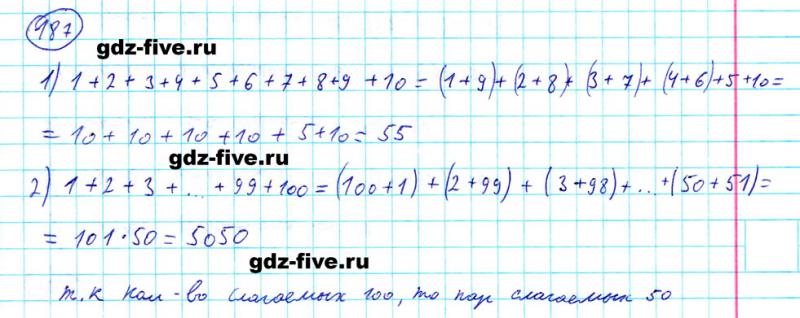 487
gdz-five.ru
1) 1+2+3+4+5+6+7+8+9+10=(1+9)+(2+8)+(3+7)+(4+6)+5+10=
=10+10+10+10+5+10=55
gdz-five.ru
2) 1+2+3+...+99+100=(100+1)+(2+99)+(3+98)+...+(50+51)=
=101·50=5050
gdz-five.ru
т.к кол-во слагаемых 100, то пар слагаемых 50